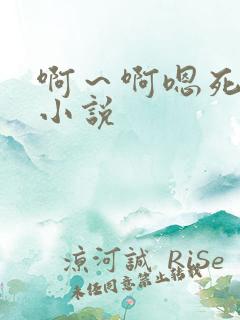 啊一啊嗯死
小说
凉河诚 RiSe
未经同意禁止转载